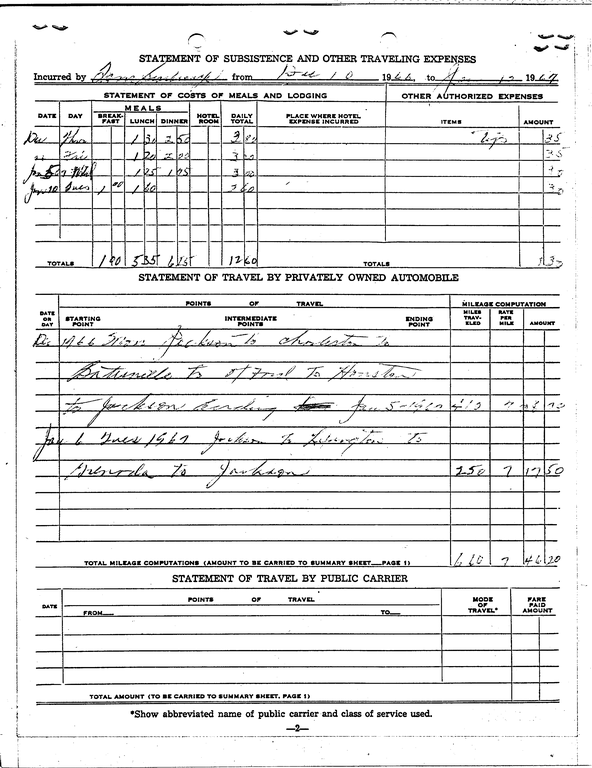 STATEMENT OF SUBSISTENCE AND OTHER TRAVELING EXPENSES
Incurred by from Dec 10 1966 to Jan 12 1967
STATEMENT OF COSTS OF MEALS AND LODGING OTHER AUTHORIZED EXPENSES
DATE DAY MEALS BREAK-FAST LUNCH DINNER HOTEL ROOM DAILY TOTAL PLACE WHERE HOTEL EXPENSE INCURRED ITEMS AMOUNT
Dec Thur 1 30 2 50 3 80 tips 35
Fri 1 20 3 35
Jan 5 67 Wed 1 25 1 75 3 00
Jan 10 Tues 1 00 1 60 2 60
TOTALS 1 00 5 35 6 25 12 60 TOTALS 1 35
STATEMENT OF TRAVEL BY PRIVATELY OWNED AUTOMOBILE
DATE OR DAY POINTS OF TRAVEL STARTING POINT INTERMEDIATE POINTS ENDING POINT MILEAGE COMPUTATION MILES TRAV-ELED RATE PER MILE AMOUNT
Dec 1966 Jackson to Charleston to
Batesville to Oxford To Houston
to Jackson Ending Jan 5-1967 7
Jan 6 Tues 1967 Jackson to Lexington to
Grenada to Jackson 250 7 17 50
TOTAL MILEAGE COMPUTATIONS (AMOUNT TO BE CARRIED TO SUMMARY SHEET PAGE 1) 660 7 46 20
STATEMENT OF TRAVEL BY PUBLIC CARRIER
DATE POINTS OF TRAVEL FROM TO MODE OF TRAVEL* FARE PAID AMOUNT
TOTAL AMOUNT (TO BE CARRIED TO SUMMARY SHEET, PAGE 1)
*Show abbreviated name of public carrier and class of service used.
—2—